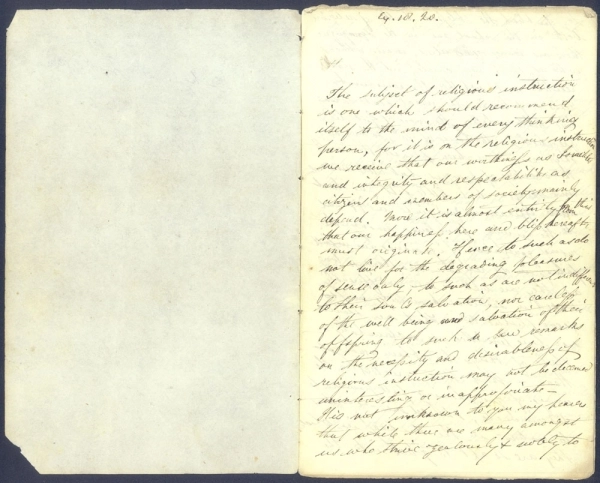 The subject of religious instruction
is one which should recommend
itself to the mind of every thinking
person, for it is on the religious instruction
we receive that our worthiness as
and integrity and respectabilities as
citizens and members of society mainly
depend. it is almost entirely from this
that our happiness here and bliss hereafter
must originate. Hence to such as do
not live for the degrading pleasures
of sense only, to such as are not indifferent
to their souls salvation, nor careless
of the well being and salvation of their
offspring to such a few remarks
on the necessity and desirableness of
religious instruction may not be deemed
uninteresting or inappropriate—
It is not unknown to you my hearers
that while there are many amongst
us who strive zealously & nobly to